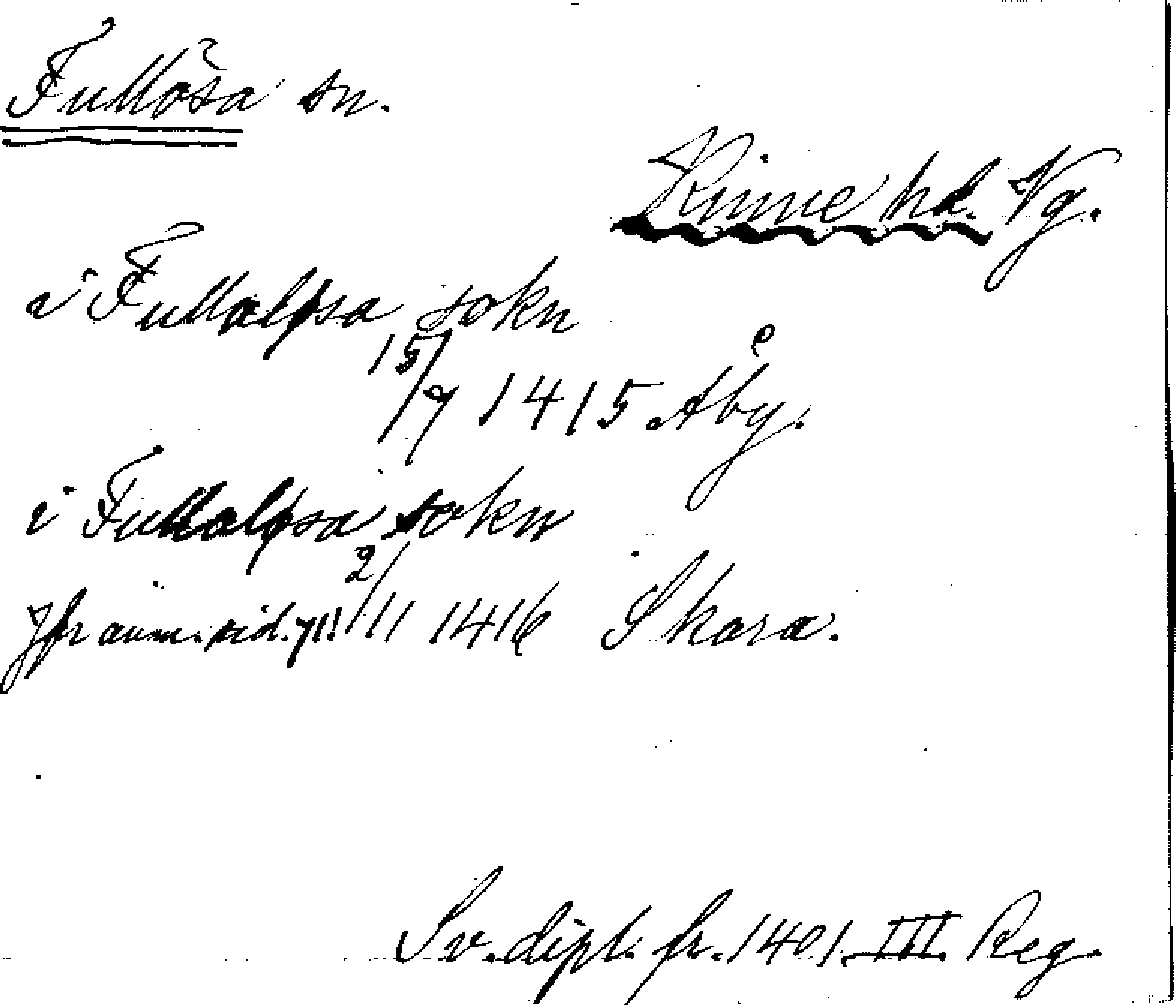 Fullösa sn.
Kinne hd. Vg.
i Fullaløsa sokn
15/7 1415 Åby.
i Fullaløsa sokn
2/11 1416 Skara.
Jfr anm. sid. 711
Sv. dipl. fr. 1401 III. Reg.